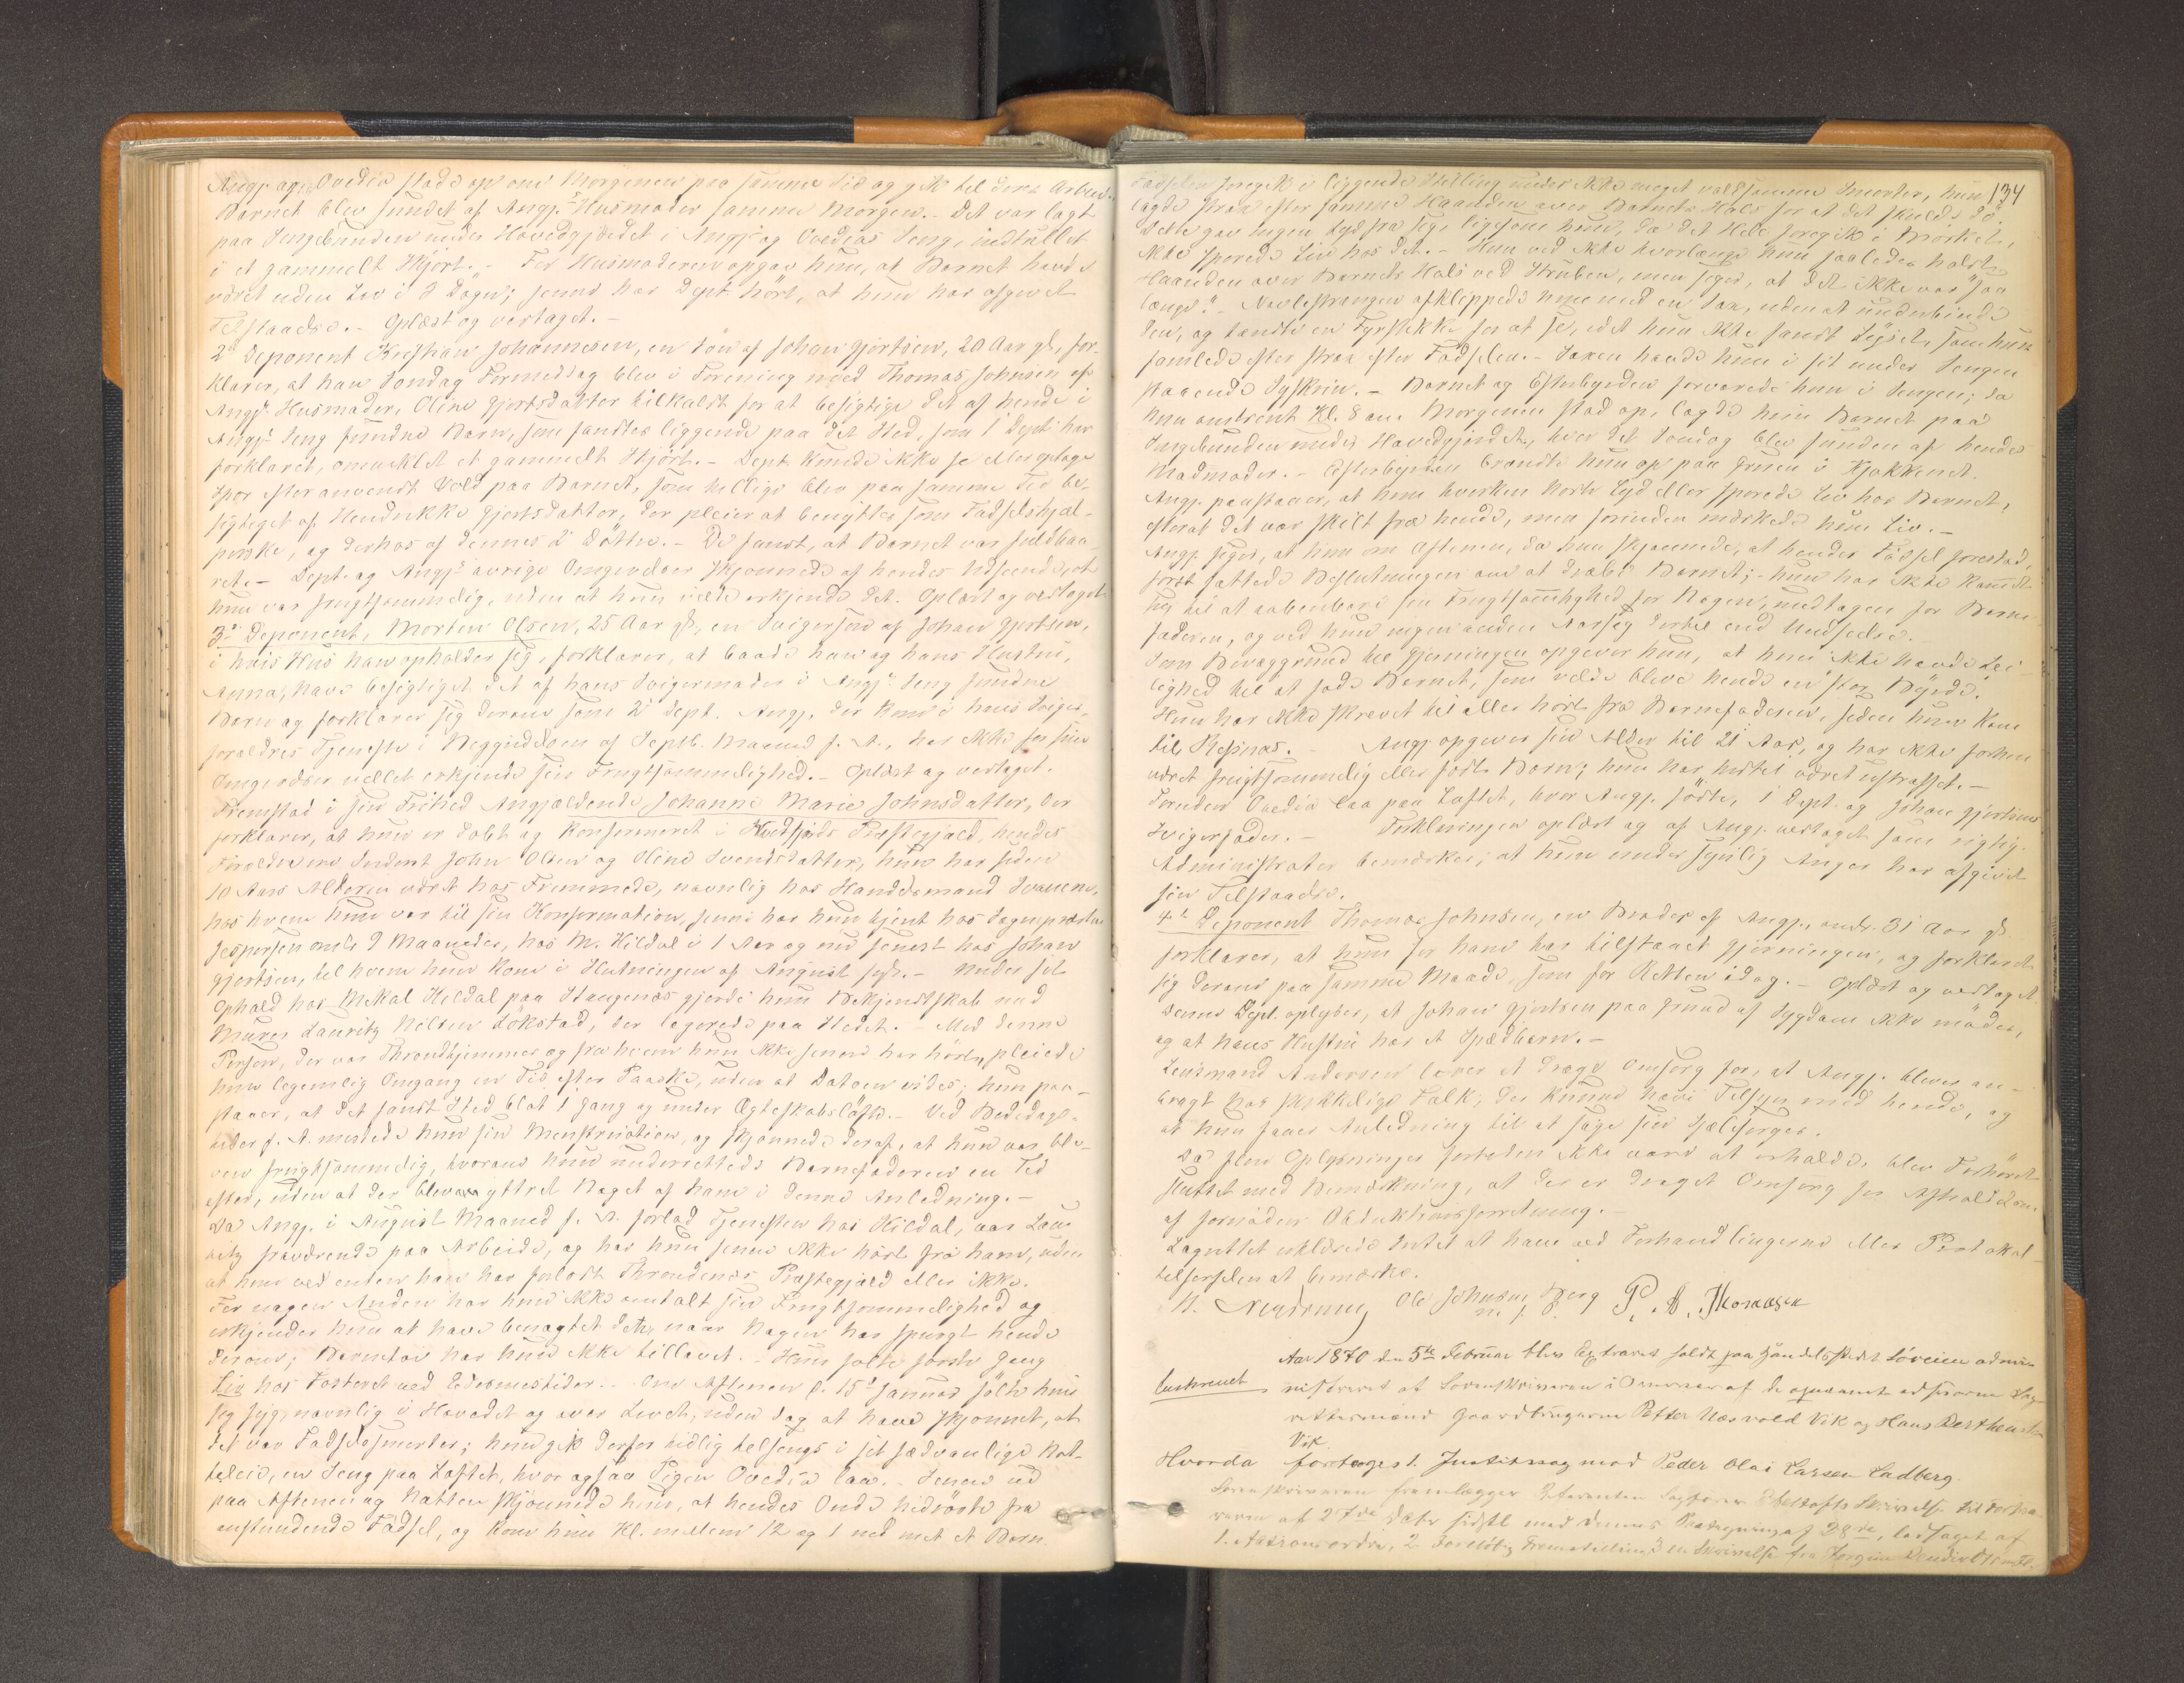 Angj. og Ovedia stode op om Morgenen paa samme Tid og gik til deres Arbeid.
Barnet blev fundet af Angj.s Husmoder samme Morgen. - Det var lagt
paa Sengebunden under Hovedgjerdet i Angjs og Ovedias Seng, indtullet
i et gammelt Skjört. - For Husmoderen opgav hun, at Barnet havde
været uden Liv i 3 Dögn; senere har Dept. hört, at hun har afgivet
Tilstaaelse. - Oplæst og vedtaget. -
2 Deponent Kristian Johannesen, en Sön af Johan Gjertsen, 20 Aar gl., for-
klarer, at han Söndag Formiddag blev i Forening med Thomas Johnsen af
Angjs Husmoder, Oline Gjertsdatter tilkaldt for at besigtige det af hende i
Angjs Seng fundne Barn, som fandtes liggende paa det Sted, som 1 Dept. har
forklaret, omviklet et gammelt Skjört. - Dept. kunde ikke se eller opdage
Spor efter anvendt Vold paa Barnet, som tillige blev paa samme Tid be-
sigtiget af Hendrikke Gjertsdatter, der pleier at benyttes som Födselshjæl-
perske, og derhos af dennes 2 Döttre. - De fandt, at Barnet var fuldbaa-
ret. - Dept. og Angjs övrige Omgivelser skjönnede af hendes Udseende, at
hun var frugtsommelig, uden at hun vilde erkjende det. Oplæst og vedtaget
3 Deponent, Morten Olsen, 25 Aar gl., en Svigersön af Johan Gjertsen,
i hvis Hus han opholder sig, forklarer, at baade han og hans Hustru,
Anna, have besigtiget det af hans Svigermoder i Angjs Seng fundne
Barn og forklarer sig derom som 2 Dept. Angj. der kom i hans Sviger-
forældres Tjeneste i Begyndelsen af Septb. Maaned f. A., har ikke for sine
Omgivelser villet erkjende sin Frugtsommelighed. - Oplæst og vedtaget.
Fremstod i sin Frihed Angjældende Johanne Marie Johnsdatter, der
forklarer, at hun er döbt og konfirmeret i Kvedfjords Præstegjæld, hendes
Forældre ere Inderst John Olsen og Oline Svendsdatter, hun har siden
10 Aars Alderen været hos Fremmede, navnlig hos Handelsmand
hos hvem hun var til sin Konfirmation, senere har hun tjent hos Sognepræsten
Jespersen omtr. 9 Maaneder, hos M. Kildal i 1 Aar og nu senest hos Johan
Gjertsen, til hvem hun kom i Slutningen af August sidst. - Under sit
Ophold hos Mikal Kildal paa Stangenæs gjorde hun Bekjendtskab med
Murer Lauritz Nilsen Lökstad, der logerede paa Stedet. - Med denne
Person, der var Throndhjemmer og fra hvem hun ikke senere har hört, pleiede
hun legemlig Omgang en Tid efter Paaske, uden at Datoen vides; hun paa-
staaer, at det fandt Sted blot 1 Gang og under Ægteskabslöfte. - Ved Bededags-
tider f. A. mistede hun sin Menstruation, og skjönnede deraf, at hun var ble-
ven frugtsommelig, hvorom hun underrettede Barnefaderen en Tid
efter, uden at der blev yttret Noget af ham i denne Anledning. -
Da Angj. i August Maaned f. A. forlod Tjenesten hos Kildal, var Lau-
ritz fraværende paa Arbeide, og har hun senere ikke hört fra ham, uden
at hun ved enten han har forladt Throndenæs Præstegjæld eller ikke.
For nogen Anden har hun ikke omtalt sin Frugtsommelighed og
erkjender hun at have benægtet dette, naar Nogen har spurgt hende
derom; Barnetöi har hun ikke tillavet. - Hun fölte förste Gang
Liv hos Fosteret ved Edismestider. - Om Aftenen d. 15 Januar fölte hun
sig syg, navnlig i Hovedet og over Livet, uden dog at have skjönnet, at
det var Födselssmerter; hun gik derfor tidlig tilsengs i sit sædvanlige Nat-
teleie, en Seng paa Loftet, hvor ogsaa Pigen Ovedia laa. - Senere ud
paa Aftenen og Natten skjönnede hun, at hendes Onde hidrörte fra
anstundende Födsel, og kom hun Kl. mellem 12 og 1 ned met et Barn.
134
Födselen foregik i liggende Stilling under ikke meget voldsomme Smerter, hun
lagde strax efter samme Haanden over Barnets Hals for at det skulde dö.
Dette gav ingen Lyd fra sig, ligesom hun, da det Hele foregik i Mörket,
ikke sporede Liv hos det. - Hun ved ikke hvorlænge hun saaledes holdt
Haanden over Barnets Hals ved Struben, men siger, at det ikke var "saa
længe". - Navlestrængen afklippede hun med en Sax, uden at underbinde
den, og tændte en Fyrstikke for at se, idet hun ikke fandt Löjet, som hun
samlede efter strax efter Födselen. - Saxen havde hun i sit under Sengen
staaende Syskrin. - Barnet og Efterbyrden forvarede hun i Sengen; da
hun omtrent Kl. 8 om Morgenen stod op, lagde hun Barnet paa
Sengebunden under Hovedgjerdet, hvor det Söndag blev funden af hendes
Madmoder. - Efterbyrden brændte hun op paa Gruen i Kjökkenet.
Angj. paastaaer, at hun hverken hörte Lyd eller sporede Liv hos Barnet,
efterat det var skilt fra hende, men forinden mærkede hun Liv. -
Angj. siger, at hun om Aftenen, da hun skjönnede, at hendes Födsel forestod,
först fattede Beslutningen om at dræbe Barnet; - hun har ikke kunnet
sig til at aabenbare sin Frugtsomhed for Nogen, undtagen for Barne-
faderen, og ved hun ingen anden Aarsag dertil end Undseelse.
Som Bevæggrund til Gjerningen opgiver hun, at hun ikke havde Lei-
lighed til at föde Barnet, som vilde blive hende en "stor Byrde".
Hun har ikke skrevet til eller hört fra Barnefaderen, siden hun kom
til Refsnæs. - Angj. opgiver sin Alder til 21 Aar, og har ikke forhen
været frugtsommelig eller födt Börn; hun har hidtil været ustraffet. -
Foruden Ovedia laa paa Loftet, hvor Angj. födte, 1 Dept. og Johan Gjertsens
Svigerfader. - Forklaringen oplæst og af Angj. vedtaget som rigtig.
Administrator bemærker, at hun under synlig Anger har afgivet
sin Tilstaaelse.
4de Deponent Thomas Johnsen, en Broder af Angj., omtr. 31 Aar gl.
forklarer, at hun for ham har tilstaaet Gjerningen, og forklaret
sig derom paa samme Maade, som for Retten idag. - Oplæst og vedtaget.
Denne Dept. oplyser, at Johan Gjertsen paa Grund af Sygdom ikke möder,
og at hans Hustru har et Spædbarn. -
Lensmand Andersen lover at drage Omsorg for, at Angj. bliver an-
bragt hos skikkelige Folk, der kunne have Tilsyn med hende, og
at hun faaer Anledning til at söge sin Sjælesörger.
Da flere Oplysninger fortiden ikke vare at erholde, blev Forhöret
sluttet med Bemærkning, at der er draget Omsorg for Afholdelsen
af fornöden Obduktionsforretning. -
Lagrettet erklærede Intet at have ved Forhandlingerne eller Protokol-
tilförslen at bemærke.
Ole Johnsen Berg P. A. Thomasen
m. f. P.
Aar 1870 den 5te Februar blev Extraret holdt paa Handelsstedet Löveien admi-
nistreret af Sorenskriveren i Overvær af de opnævnte edsvorne Lag-
rettesmænd Gaardbrugerne Petter Næsvold Vik og Hans Bertheusen
Vik.
Hvorda foretoges 1. Justitssag mod Peder Olai Larsen Ladberg.
Sorenskriveren fremlægger Skrivelse til
af 27de med dennes Paategning af 28de, ledsaget af
1. Aktionsordre, 2 Foreløbig Fremstilling, 3